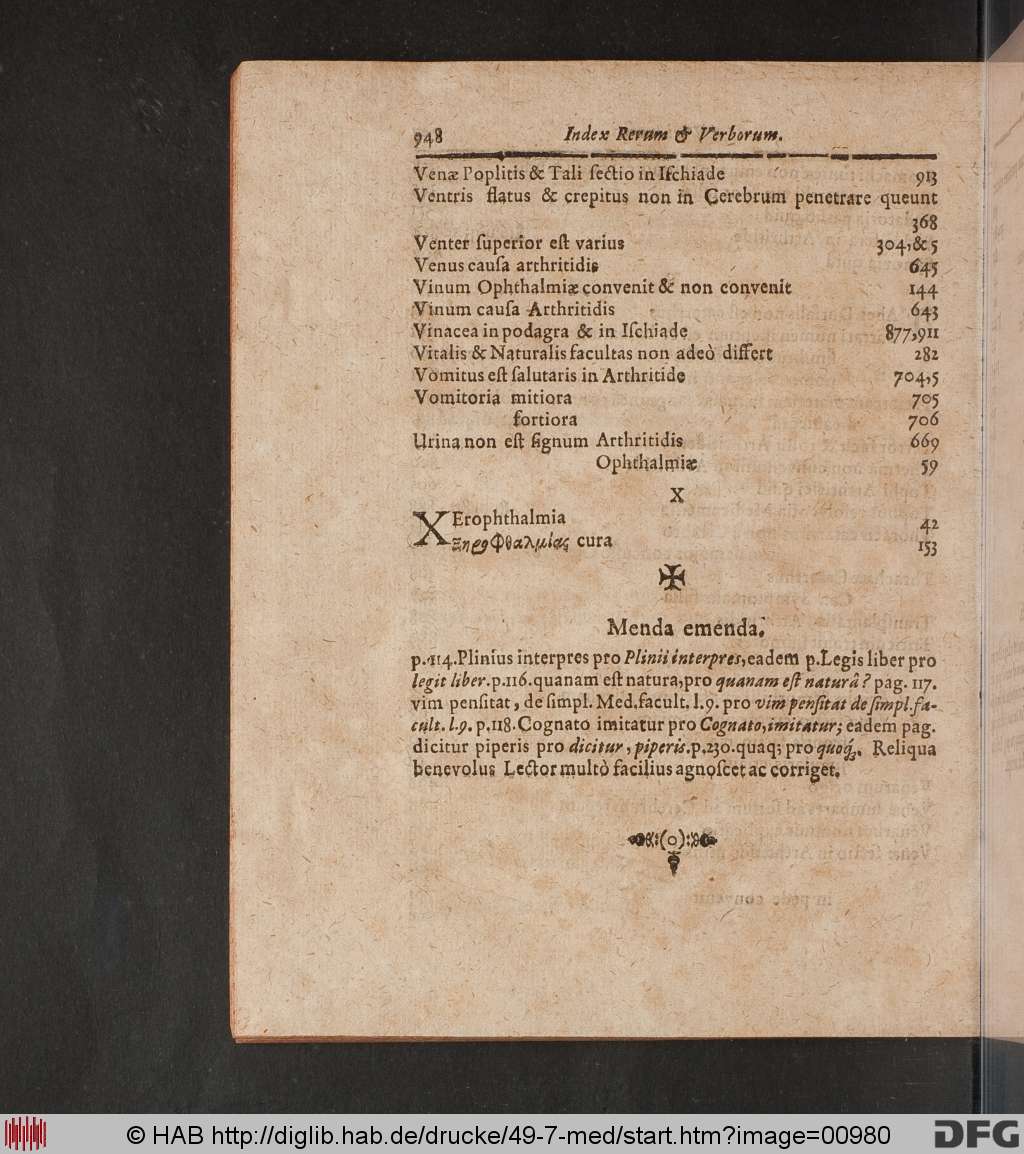 948 Index Rerum & Verborum.
Venæ Poplitis & Tali ſectio in Iſchiade 913
Ventris flatus & crepitus non in Cerebrum penetrare queunt
368
Venter ſuperior eſt varius 304,&5
Venus cauſa arthritidis 645
Vinum Ophthalmiæ convenit & non convenit 144
Vinum cauſa Arthritidis 643
Vinacea in podagra & in Iſchiade 877,911
Vitalis & Naturalis facultas non adeò differt 282
Vomitus eſt ſalutaris in Arthritide 704,5
Vomitoria mitiora 705
fortiora 706
Urina non eſt ſignum Arthritidis 669
Ophthalmiæ 59
X
XErophthalmia 42
Ξηροφθαλμίας cura 153
✠
Menda emenda.
p.114.Plinius interpres pro Plinii interpres,eadem p.Legis liber pro
legit liber.p.116.quanam eſt natura,pro quanam eſt naturâ? pag. 117.
vim penſitat, de ſimpl. Med.facult. l.9. pro vim penſitat de ſimpl.fa-
cult. l.9. p.118.Cognato imitatur pro Cognato,imitatur; eadem pag.
dicitur piperis pro dicitur, piperis.p.230.quaq; pro quoq́;. Reliqua
benevolus Lector multò facilius agnoſcet ac corriget.
:(o):
© HAB http://diglib.hab.de/drucke/49-7-med/start.htm?image=00980
DFG